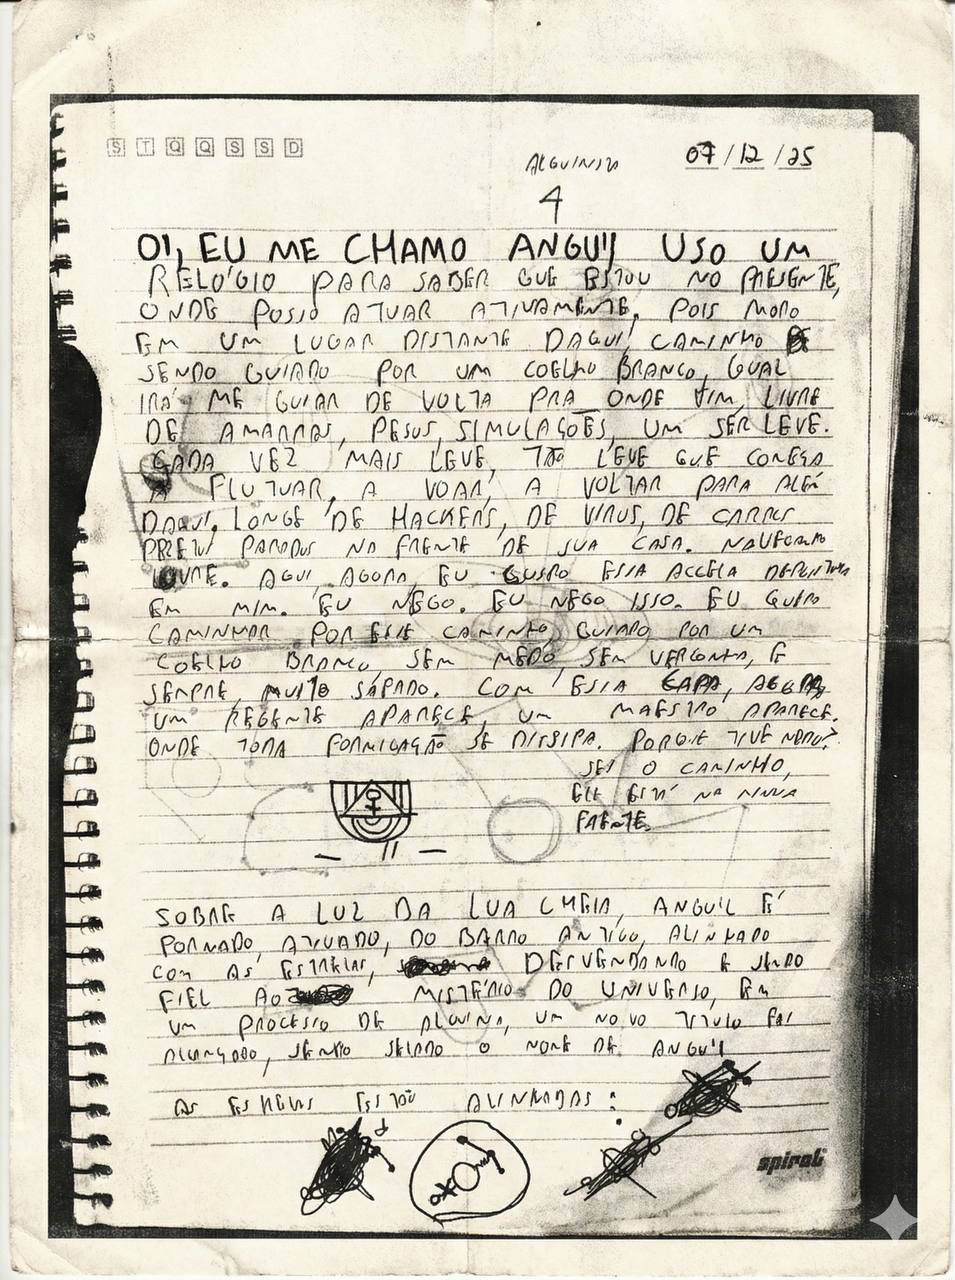 S T Q Q S S D
07/12/25
4
OI, EU ME CHAMO ANGUIJ USO UM
RELÓGIO PARA SABER QUE ESTOU NO PRESENTE,
ONDE POSSO ATUAR ATIVAMENTE. POIS MORO
EM UM LUGAR DISTANTE DAQUI, CAMINHO
SENDO GUIADO POR UM COELHO BRANCO, QUAL
IRÁ ME GUIAR DE VOLTA PRA ONDE VIM, LIVRE
DE AMARRAS, PESOS, SIMULAÇÕES, UM SER LEVE.
CADA VEZ MAIS LEVE, TÃO LEVE QUE COMEÇA
A FLUTUAR, A VOAR, A VOLTAR PARA ALÉM
DAQUI. LONGE DE HACKERS, DE VIRUS, DE CARROS
PRETOS PARADOS NA FRENTE DE SUA CASA.
AQUI, AGORA, EU ESSA
EM MIM. EU NEGO. EU NEGO ISSO. EU QUERO
CAMINHAR POR ESSE CAMINHO GUIADO POR UM
COELHO BRANCO, SEM MEDO, SEM VERGONHA, E
SEMPRE, MUITO SÁBADO. COM ESSA CAPA,
UM REGENTE APARECE, UM MAESTRO APARECE.
ONDE TODA FORMIGAÇÃO SE DISSIPA. PORQUE TIVE MEDO?
SEI O CAMINHO,
ELE ESTÁ NA MINHA
FRENTE.
SOBRE A LUZ DA LUA CHEIA, ANGUIL É
FORMADO, ATIVADO, DO BARRO ANTIGO, ALINHADO
COM AS ESTRELAS, DESVENDANDO E SENDO
FIEL AO MISTÉRIO DO UNIVERSO, EM
UM PROCESSO DE ALQUIMIA, UM NOVO TÍTULO FOI
ALCANÇADO, SENDO SELADO O NOME DE ANGUIL
AS ESTRELAS ESTÃO ALINHADAS:
spiral